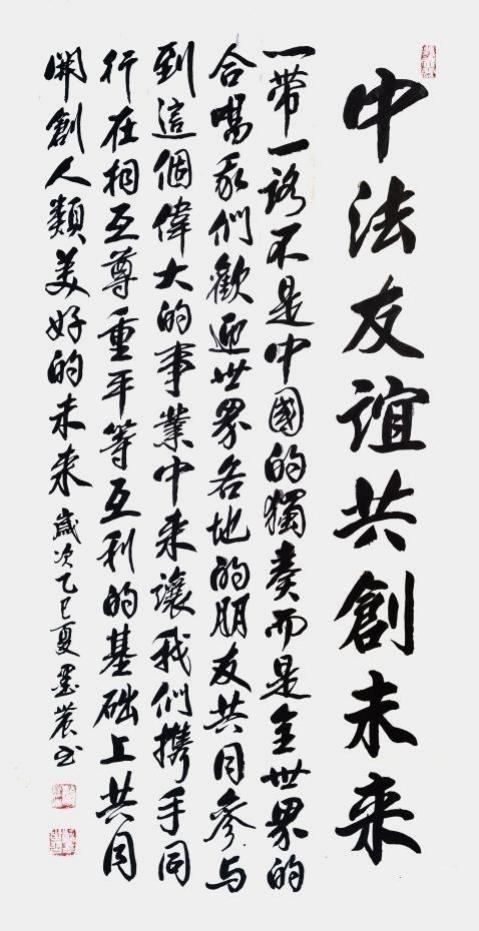 中法友誼共創未来
一带一路不是中國的獨奏而是全世界的
合唱我們歡迎世界各地的朋友共同參与
到這個偉大的事業中来讓我們携手同
行在相互尊重平等互利的基础上共同
開創人類美好的未来 歲次乙巳夏 墨農书